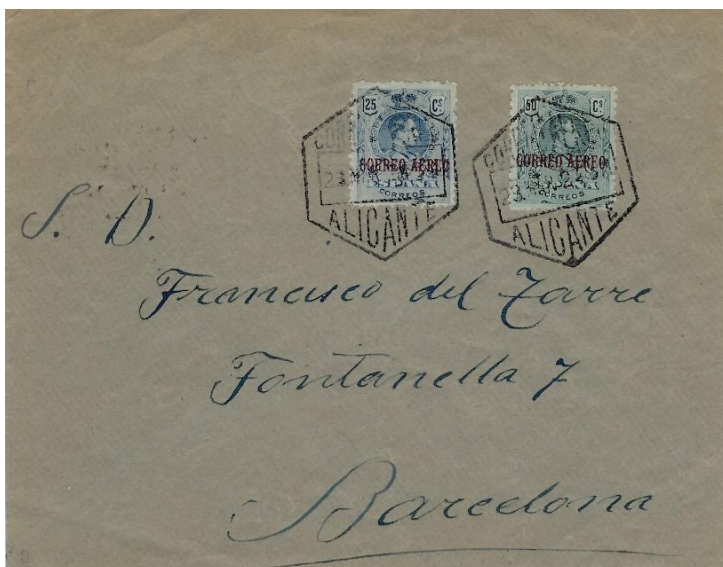 25 Cs
CORREO AEREO
CORREOS
ALICANTE
50 Cs
CORREO AEREO
CORREOS
ALICANTE
S. D.
Francisco del Zarre
Fontanella 7
Barcelona